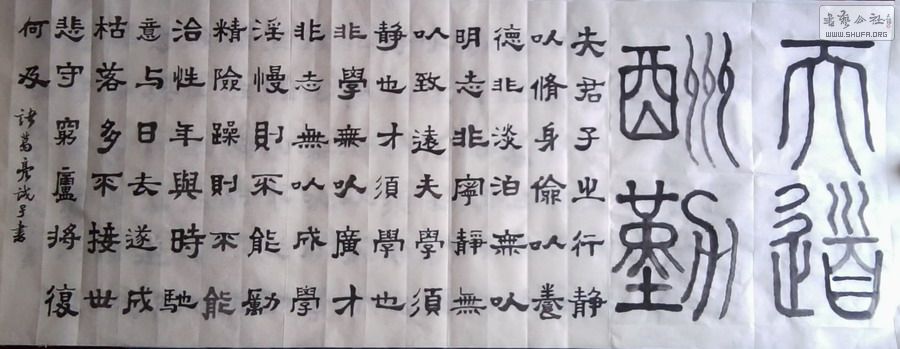 天道
酬勤
夫君子之行静
以脩身儉以養
德非淡泊無以
明志非寧靜無
以致遠夫學須
静也才須學也
非學無以廣才
非志無以成學
淫慢則不能勵
精險躁則不能
治性年與時馳
意与日去遂成
枯落多不接世
悲守窮廬將復
何及
諸葛亮誡子書
书艺公社
WWW.SHUFA.ORG